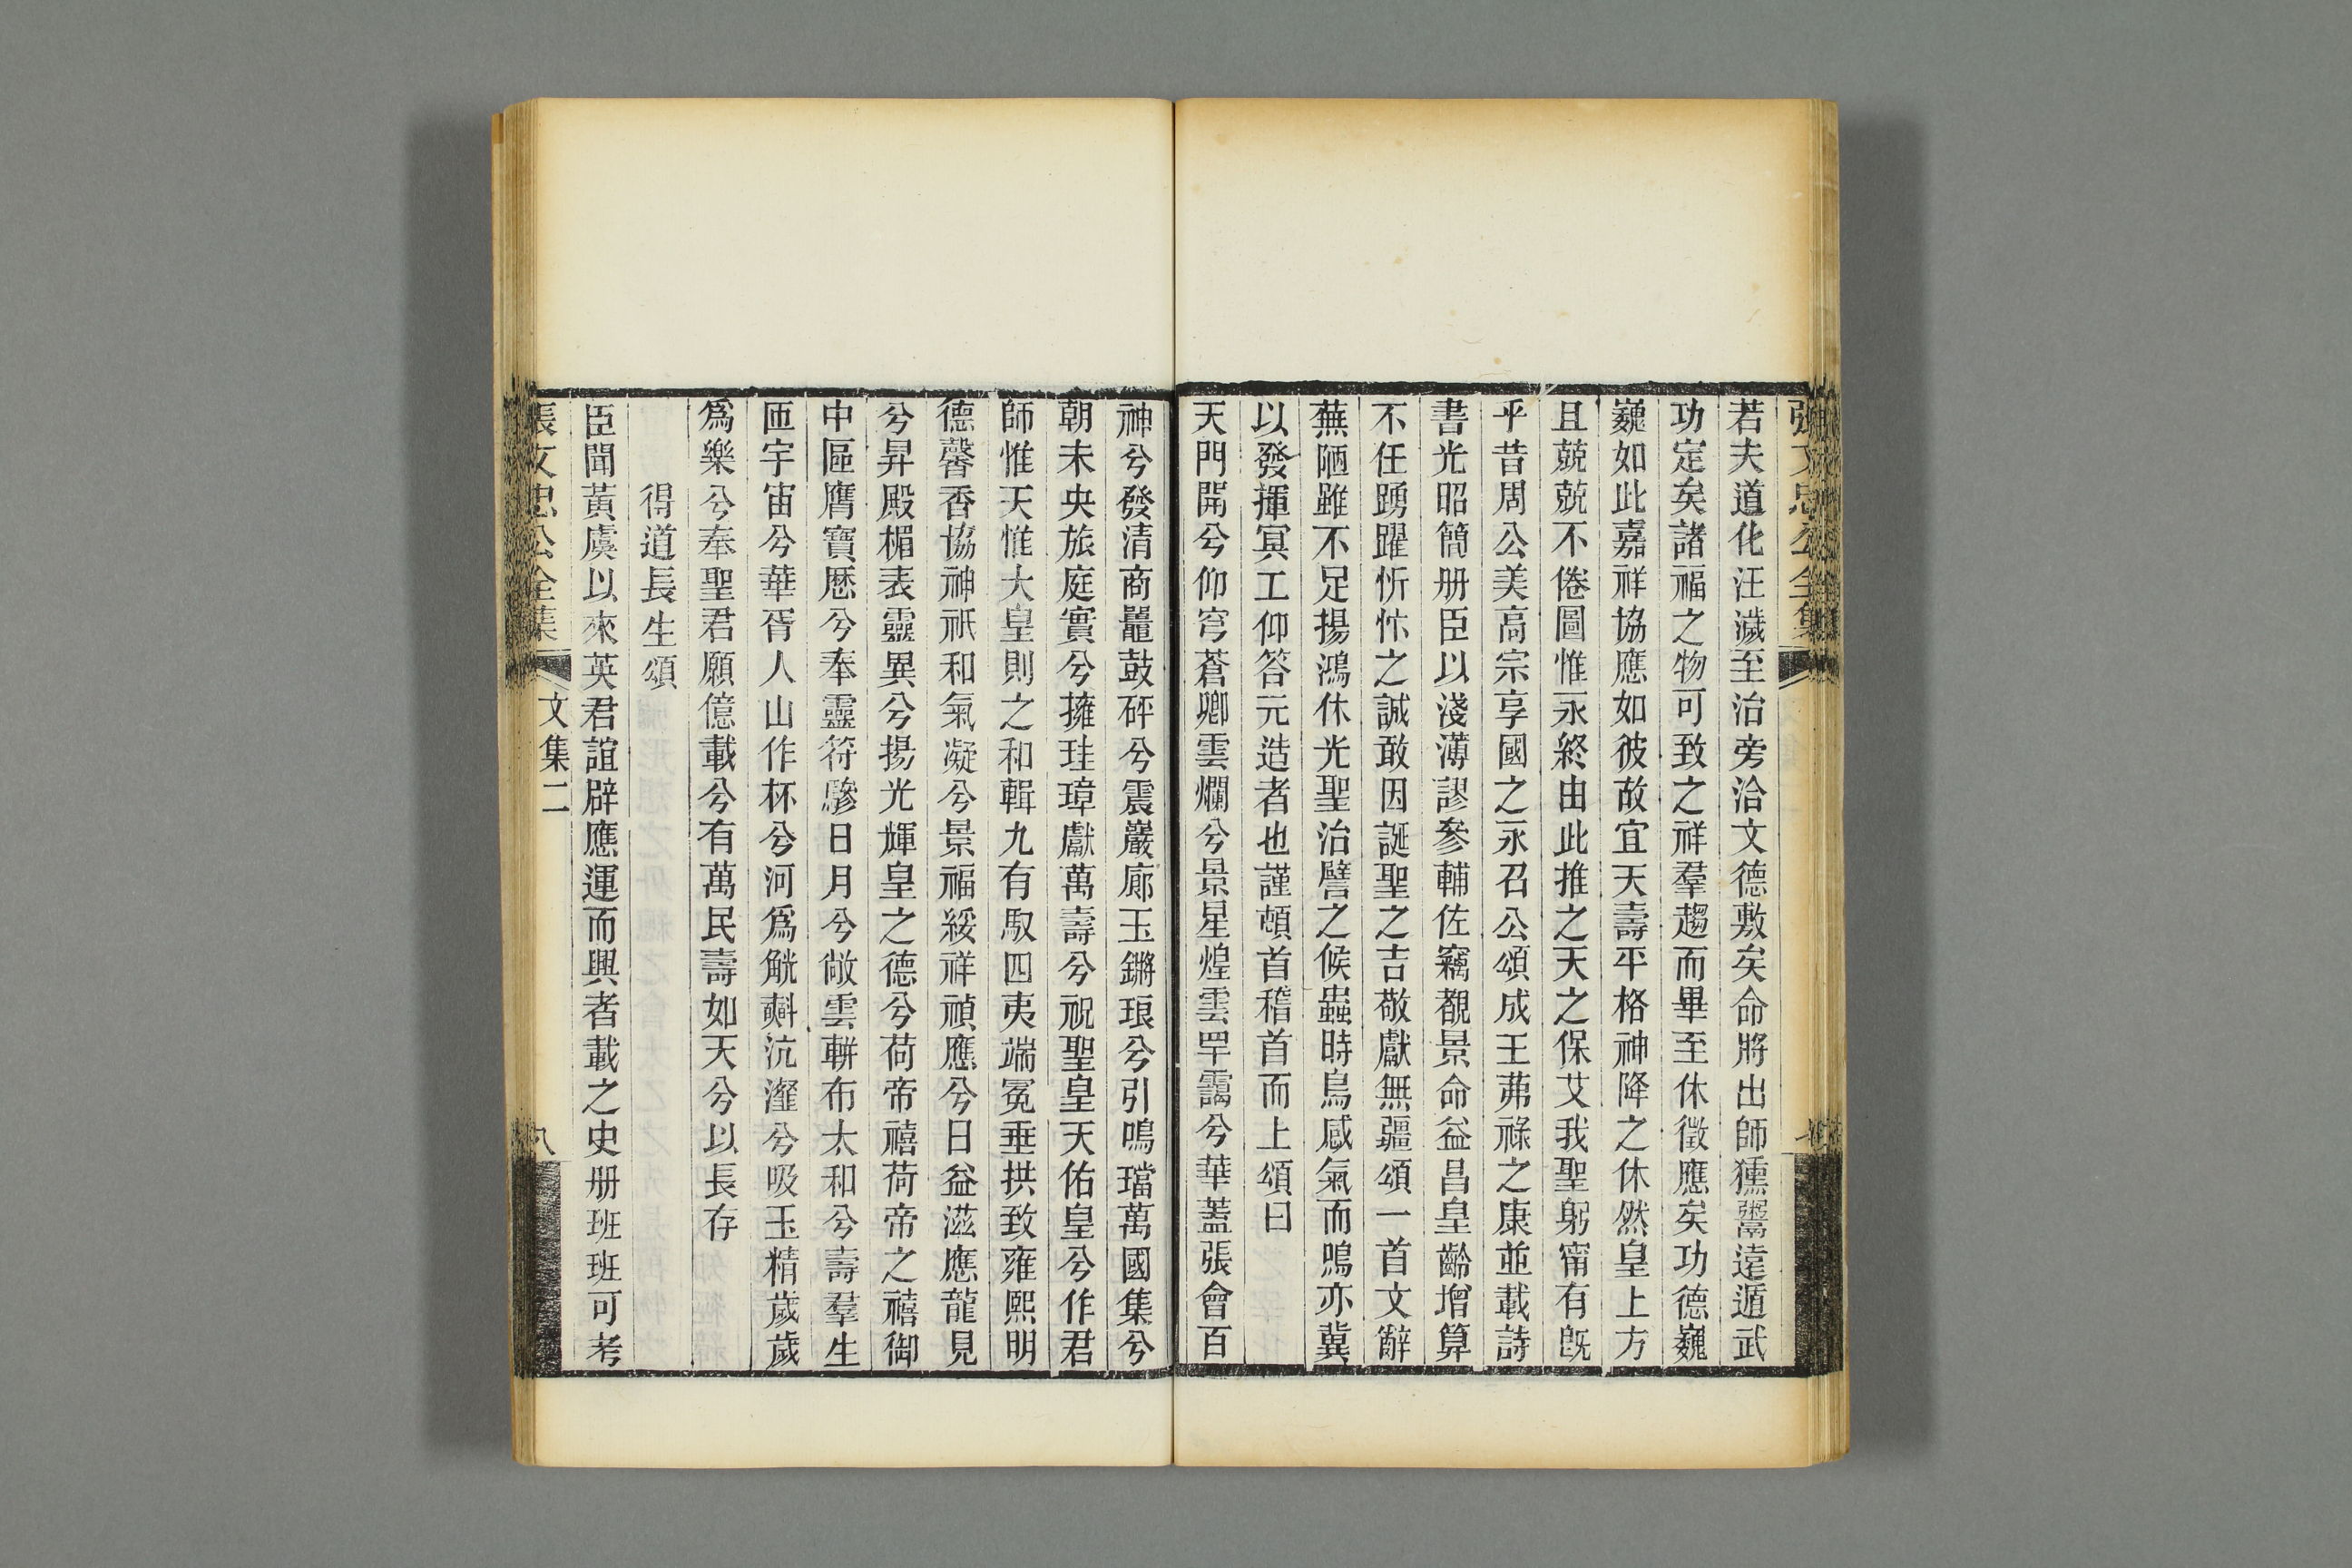 張文忠公全集
若夫道化汪濊至治旁洽文德敷矣命將出師獯鬻遠遁武
功定矣諸福之物可致之祥羣趨而畢至休徵應矣功德巍
巍如此嘉祥協應如彼故宜天壽平格神降之休然皇上方
且兢兢不倦圖惟永終由此推之天之保艾我聖躬甯有旣
乎昔周公美高宗享國之永召公頌成王茀祿之康並載詩
書光昭簡册臣以淺薄謬參輔佐竊覩景命益昌皇齡增算
不任踴躍忻忭之誠敢因誕聖之吉敬獻無疆頌一首文辭
蕪陋雖不足揚鴻休光聖治譬之候蟲時鳥感氣而鳴亦冀
以發揮冥工仰答元造者也謹頓首稽首而上頌曰
天門開兮仰穹蒼卿雲爛兮景星煌雲罕靄兮華蓋張會百
神兮發清商鼉鼓砰兮震巖廊玉鏘琅兮引鳴璫萬國集兮
朝未央旅庭實兮擁珪璋獻萬壽兮祝聖皇天佑皇兮作君
師惟天惟大皇則之和輯九有馭四夷端冕垂拱致雍熙明
德馨香協神祇和氣凝兮景福綏祥禎應兮日益滋應龍見
兮昇殿楣表靈異兮揚光輝皇之德兮荷帝禧荷帝之禧御
中區膺寶厯兮奉靈符驂日月兮敞雲軿布太和兮壽羣生
匝宇宙兮華胥人山作杯兮河爲觥㪺沆瀣兮吸玉精歲歲
爲樂兮奉聖君願億載兮有萬民壽如天兮以長存
得道長生頌
臣聞黃虞以來英君誼辟應運而興者載之史册班班可考
張文忠公全集
文集二
八